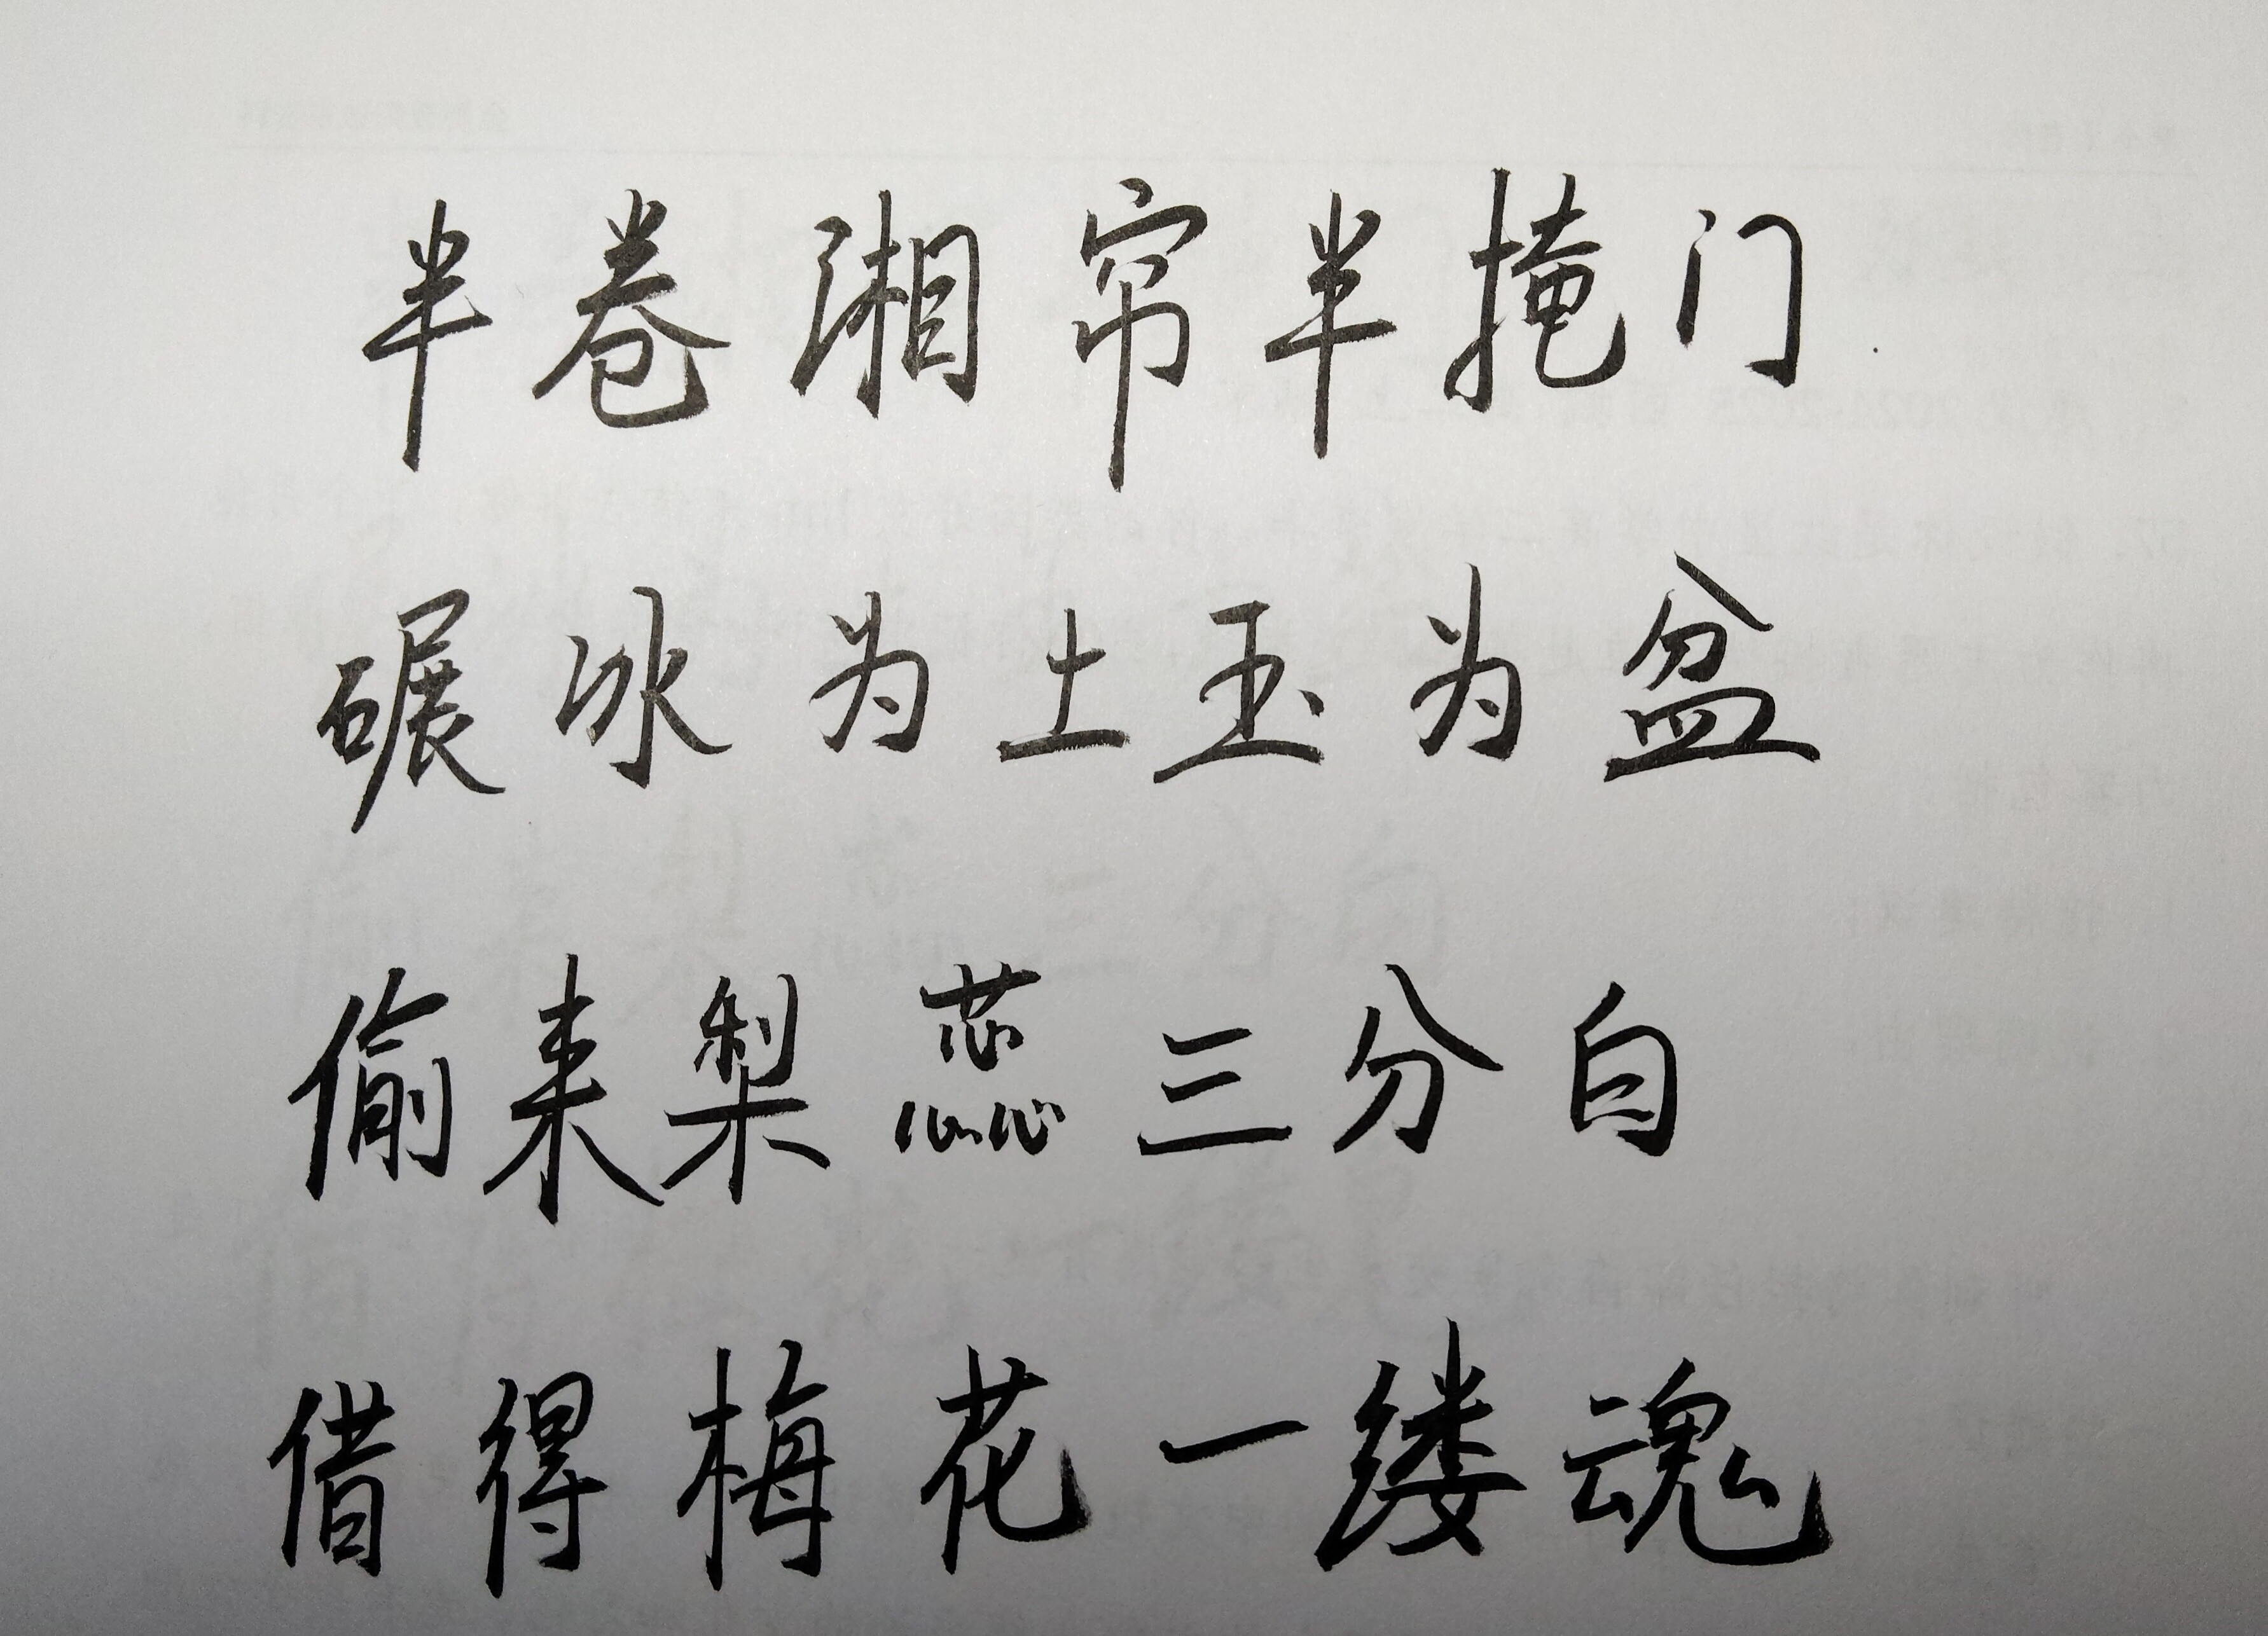 半卷湘帘半掩门
碾冰为土玉为盆
偷来梨蕊三分白
借得梅花一缕魂